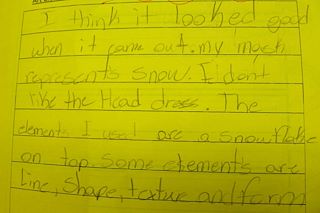 I think it looked good
when it came out. my mask
represents snow. I dont
like the Head dress. The
elements I used are a snowflake
on top. some elements are
Line, shape, texture and form